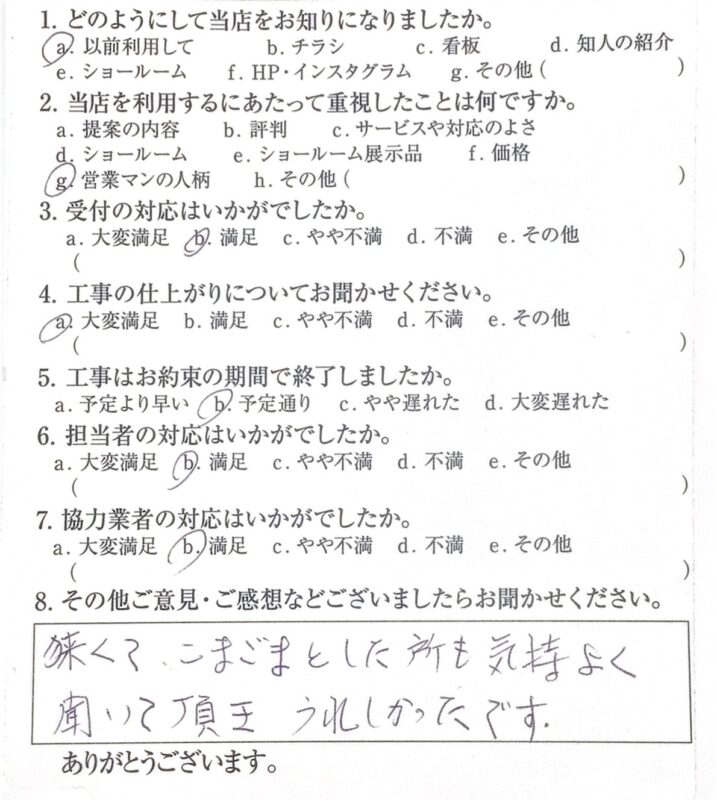 1. どのようにして当店をお知りになりましたか。
a. 以前利用して　b. チラシ　c. 看板　d. 知人の紹介
e. ショールーム　f. HP・インスタグラム　g. その他 (　)
2. 当店を利用するにあたって重視したことは何ですか。
a. 提案の内容　b. 評判　c. サービスや対応のよさ
d. ショールーム　e. ショールーム展示品　f. 価格
g. 営業マンの人柄　h. その他 (　)
3. 受付の対応はいかがでしたか。
a. 大変満足　b. 満足　c. やや不満　d. 不満　e. その他
(　)
4. 工事の仕上がりについてお聞かせください。
a. 大変満足　b. 満足　c. やや不満　d. 不満　e. その他
(　)
5. 工事はお約束の期間で終了しましたか。
a. 予定より早い　b. 予定通り　c. やや遅れた　d. 大変遅れた
6. 担当者の対応はいかがでしたか。
a. 大変満足　b. 満足　c. やや不満　d. 不満　e. その他
(　)
7. 協力業者の対応はいかがでしたか。
a. 大変満足　b. 満足　c. やや不満　d. 不満　e. その他
(　)
8. その他ご意見・ご感想などございましたらお聞かせください。
狭くて、こまごまとした所も気持よく
聞いて頂き うれしかったです.
ありがとうございます。